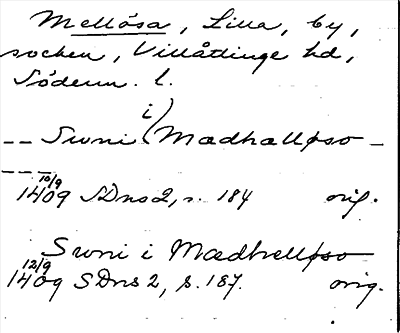 Mellösa, Lilla, by,
socken, Villåttinge hd,
Söderm. l.
-- Swni i Mædhalløso -
---
10/9 1409 SDns 2, s. 184 orig.
Swni i Mædhelløso
12/9 1409 SDns 2, s. 187. orig.